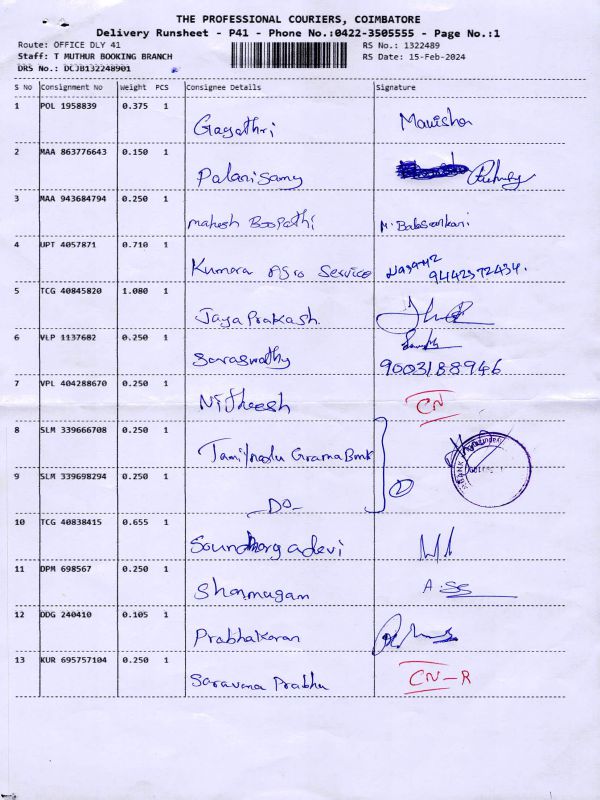 THE PROFESSIONAL COURIERS, COIMBATORE
Delivery Runsheet - P41 - Phone No.:0422-3505555 - Page No.:1
Route: OFFICE DLY 41 RS No.: 1322489
Staff: T MUTHUR BOOKING BRANCH RS Date: 15-Feb-2024
DRS No.: DCJB132248901
S No Consignment No Weight PCS Consignee Details Signature
1 POL 1958839 0.375 1
Gayathri Manisha
2 MAA 863776643 0.150 1
Palanisamy
3 MAA 943684794 0.250 1
Mahesh Boopathi M. Balasankari
4 UPT 4057871 0.710 1
Kumara Agro Service
9442372434.
5 TCG 40845820 1.080 1
Jaya Prakash.
6 VLP 1137682 0.250 1
Saraswathy 9003188946
7 VPL 404288670 0.250 1
Nitheesh CN
8 SLM 339666708 0.250 1
Tamilnadu Grama Bank
9 SLM 339698294 0.250 1
-DO- 2
10 TCG 40838415 0.655 1
Soundhorgadevi
11 DPM 698567 0.250 1
Shanmugam
12 DDG 240410 0.105 1
Prabhakaran
13 KUR 695757104 0.250 1
Saravana Prabhu CN-R